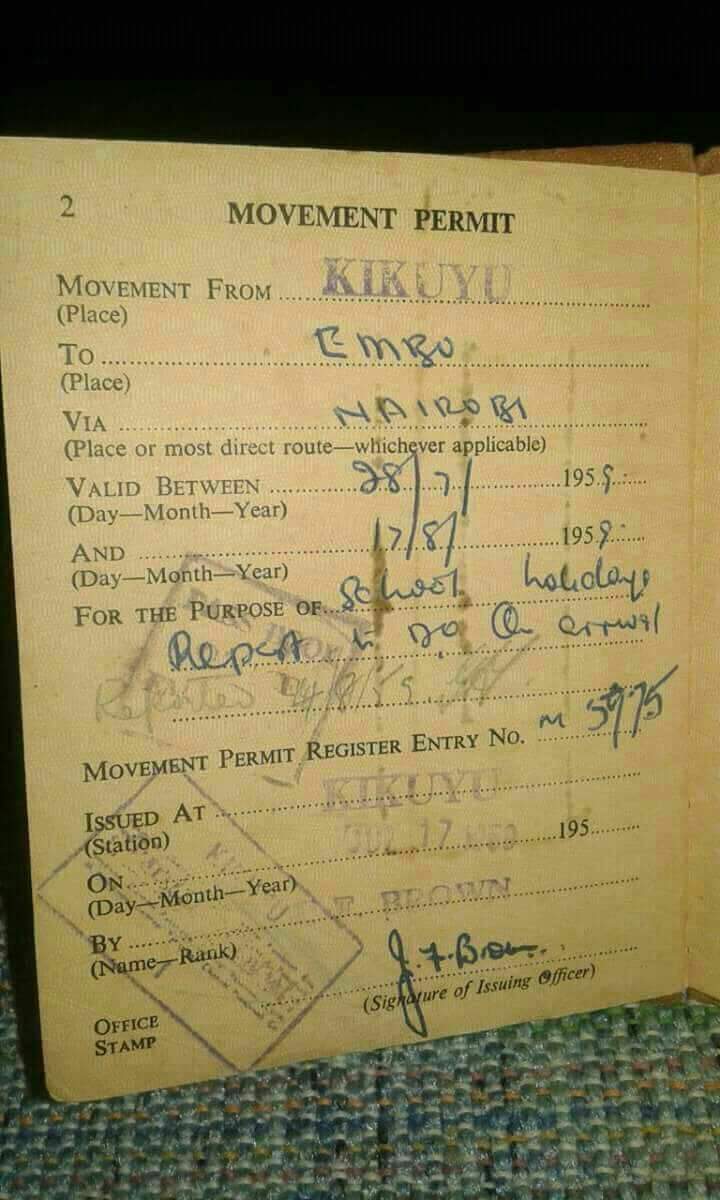 2 MOVEMENT PERMIT
MOVEMENT FROM KIKUYU
(Place)
TO EMBU
(Place)
VIA NAIROBI
(Place or most direct route—whichever applicable)
VALID BETWEEN 28/7/ 1959
(Day—Month—Year)
AND 17/8/ 1959
(Day—Month—Year)
FOR THE PURPOSE OF School holidays
Report to DO On arrival
Reported
MOVEMENT PERMIT REGISTER ENTRY NO. M 5975
ISSUED AT KIKUYU
(Station)
ON JUL 17 195
(Day—Month—Year)
BY BROWN
(Name—Rank)
J. F. Brown
(Signature of Issuing Officer)
OFFICE
STAMP
KIKUYU